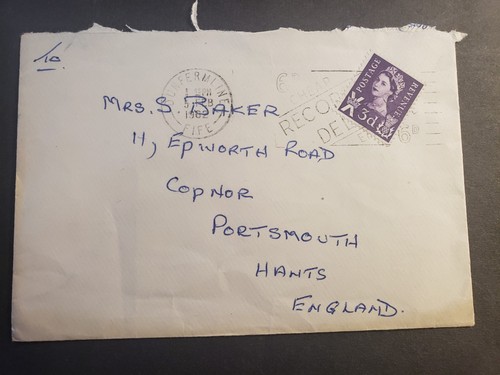 To
DUNFERMLINE
1962
FIFE
RECO
DEL
POSTAGE
REVENUE
3d
MRS. S BAKER
11, EPWORTH ROAD
COPNOR
PORTSMOUTH
HANTS
ENGLAND.